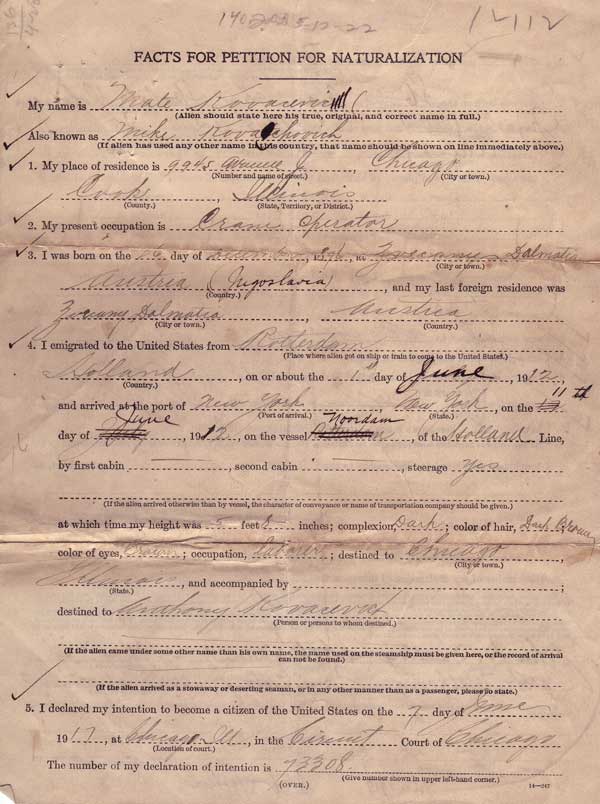 140 5-12-22
12112
FACTS FOR PETITION FOR NATURALIZATION
My name is Mate Kovacevic
(Alien should state here his true, original, and correct name in full.)
Also known as Mike
(If alien has used any other name in this country, that name should be shown on line immediately above.)
1. My place of residence is 9945, Chicago
(Number and name of street.) (City or town.)
Cook, Illinois
(County.) (State, Territory, or District.)
2. My present occupation is Crane Operator
3. I was born on the day of, at Dalmatia
(City or town.)
Austria (Jugoslavia), and my last foreign residence was
(Country.)
Dalmatia, Austria
(City or town.) (Country.)
4. I emigrated to the United States from Rotterdam
(Place where alien got on ship or train to come to the United States.)
Holland, on or about the 1st day of June, 1912,
(Country.)
and arrived at the port of New York, New York, on the 11th
(Port of arrival.) (State.)
day of June, 1912, on the vessel Noordam, of the Holland Line,
by first cabin, second cabin, steerage yes
(If the alien arrived otherwise than by vessel, the character of conveyance or name of transportation company should be given.)
at which time my height was 5 feet 8 inches; complexion, Dark; color of hair, Dark Brown;
color of eyes, Brown; occupation, Laborer; destined to Chicago,
(City or town.)
Illinois, and accompanied by ;
(State.)
destined to Anthony Kovacevich
(Person or persons to whom destined.)
(If the alien came under some other name than his own name, the name used on the steamship must be given here, or the record of arrival
can not be found.)
(If the alien arrived as a stowaway or deserting seaman, or in any other manner than as a passenger, please so state.)
5. I declared my intention to become a citizen of the United States on the 7 day of June,
1917, at Chicago Ill, in the Circuit Court of Chicago
(Location of court.)
The number of my declaration of intention is 73308.
(Give number shown in upper left-hand corner.)
(OVER.)
14—247